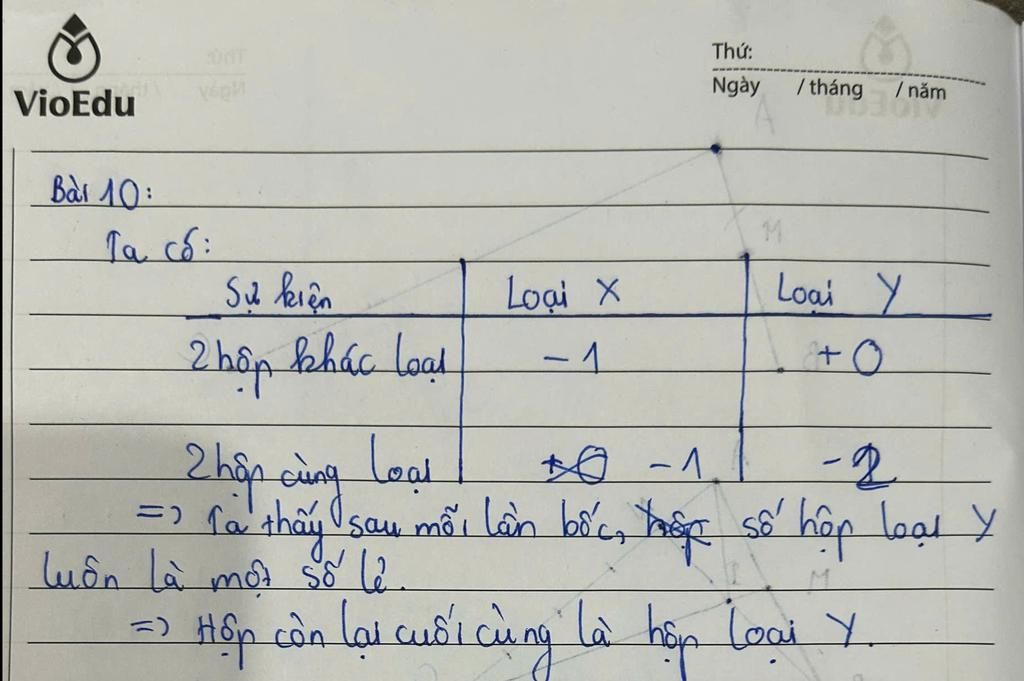 VioEdu
Thứ:
Ngày / tháng / năm
Bài 10:
Ta có:
Sự kiện Loại X Loại Y
2 hộp khác loại - 1 + 0
2 hộp cùng loại - 1 - 2
=> Ta thấy sau mỗi lần bốc, số hộp loại Y
luôn là một số lẻ.
=> Hộp còn lại cuối cùng là hộp loại Y.